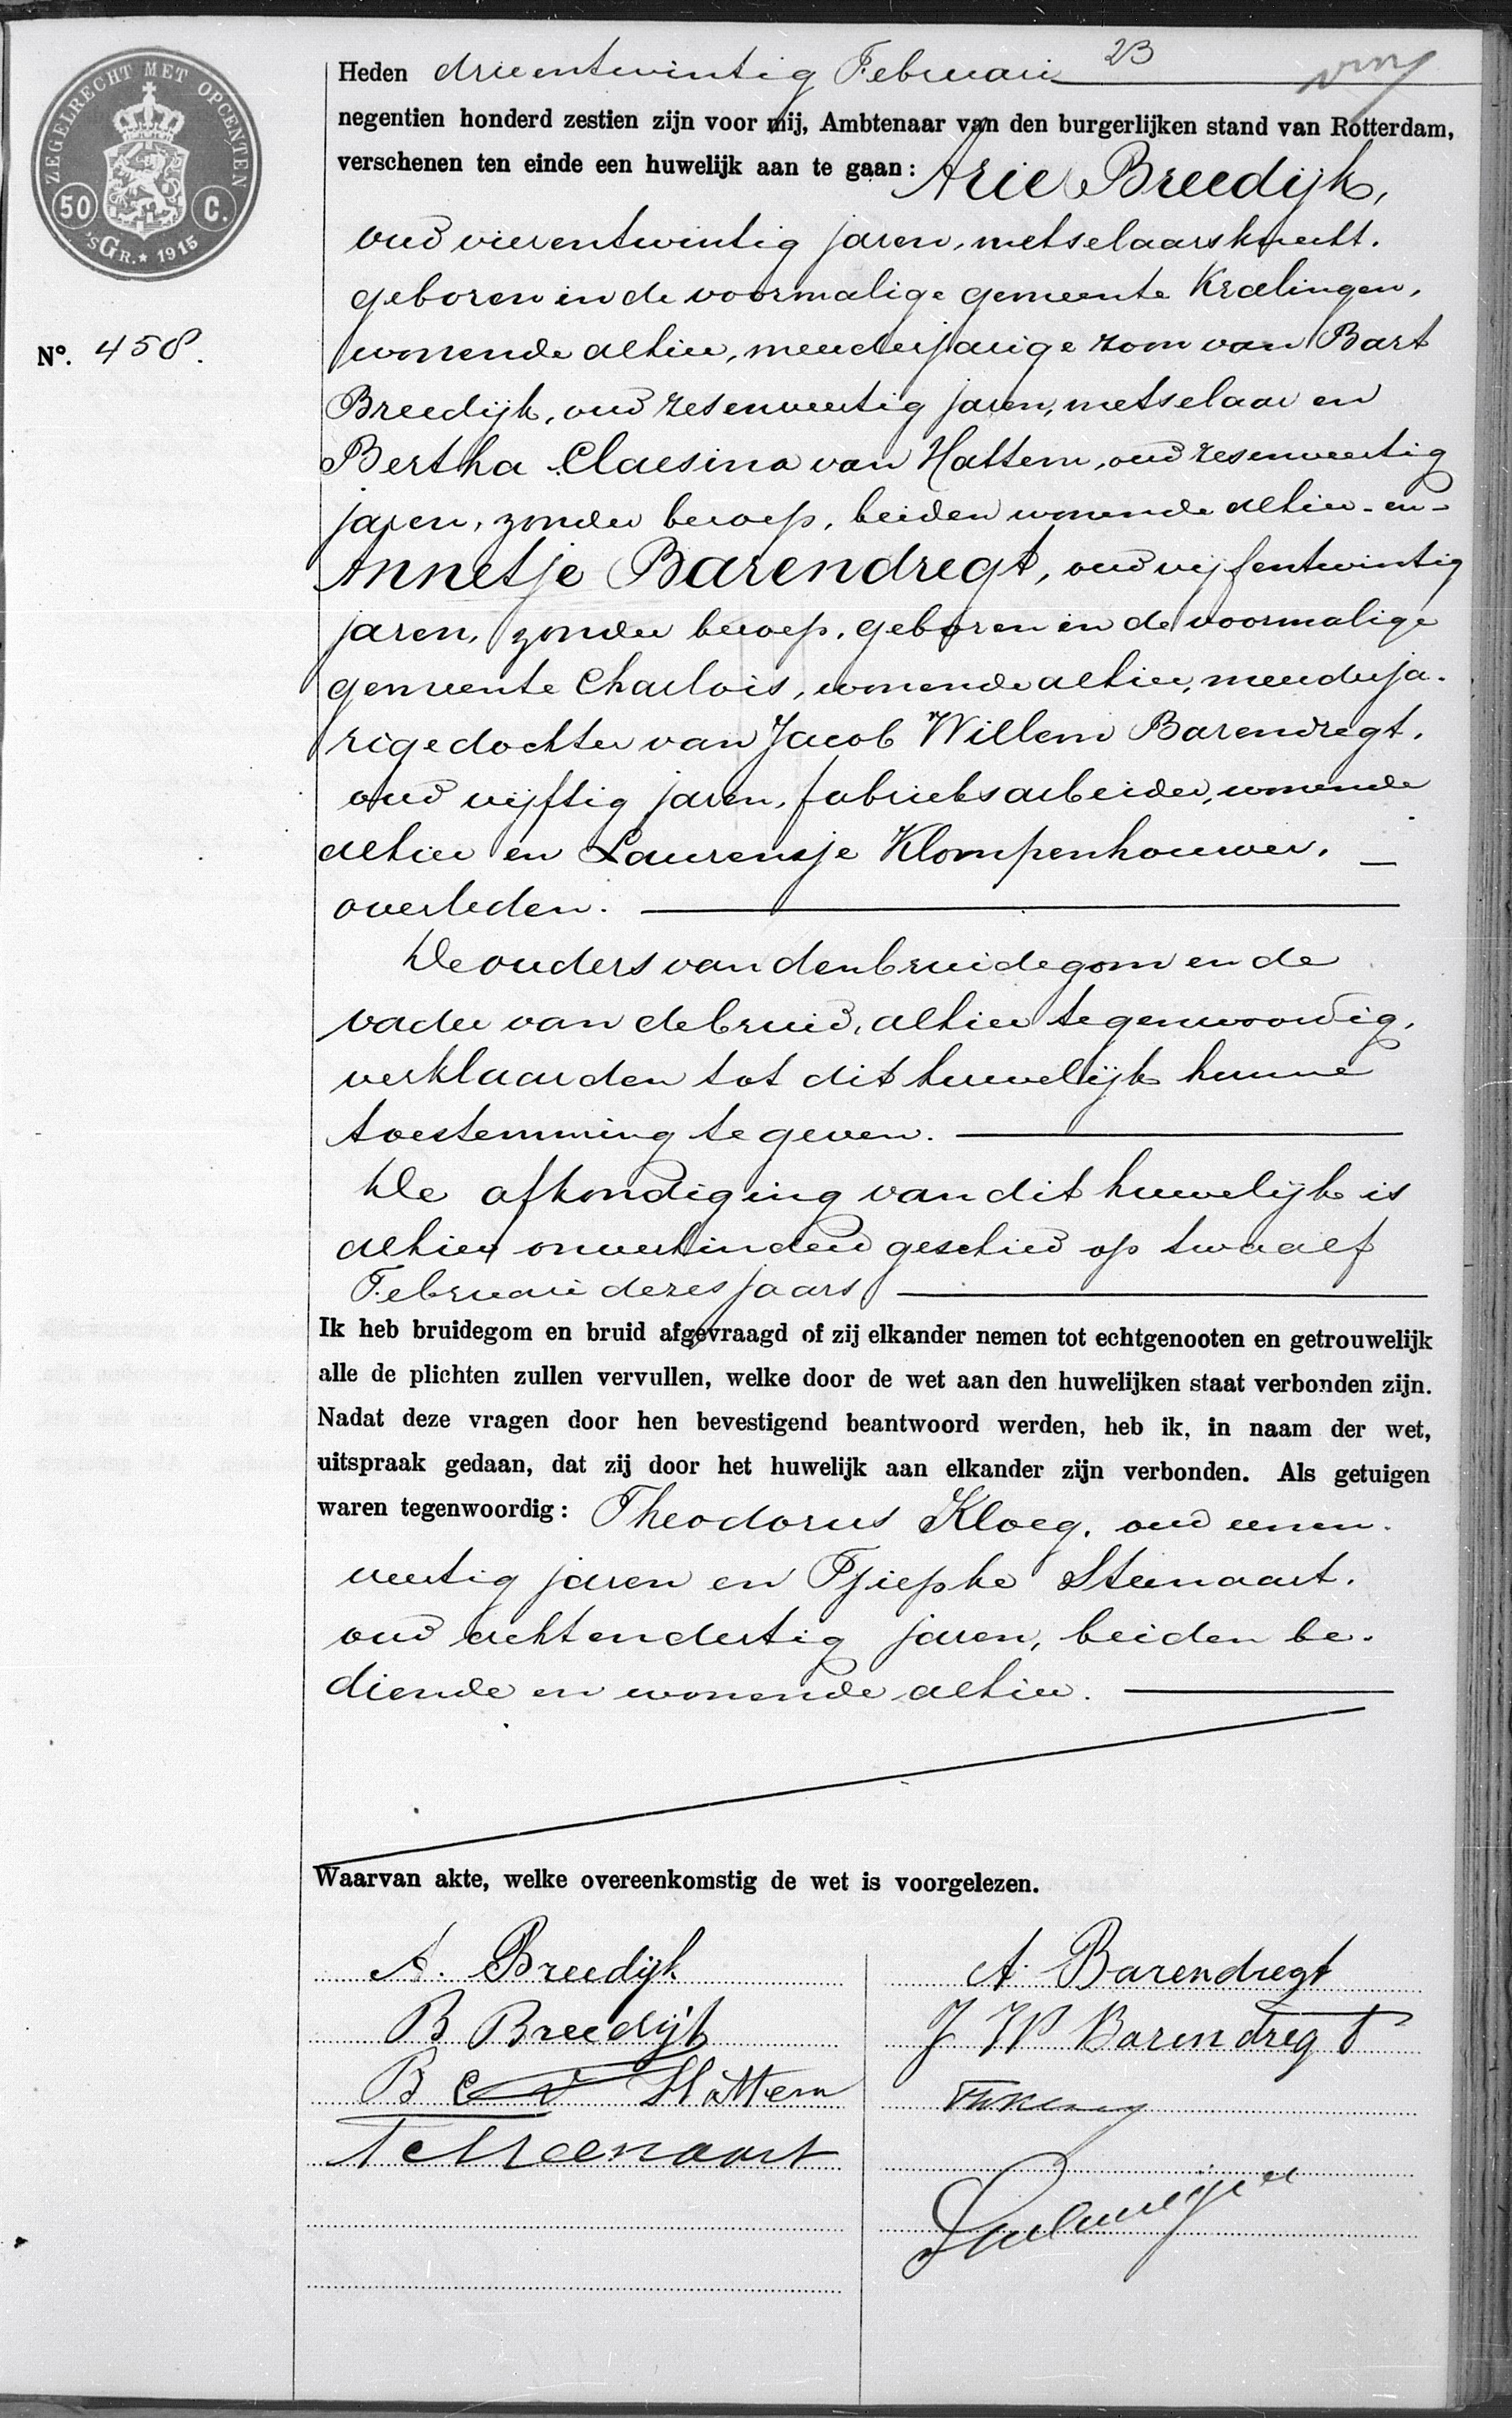 ZEGELRECHT MET OPCENTEN
50 C.
'sGR. ★ 1915
No. 458.
23
Heden drieentwintig Februari
negentien honderd zestien zijn voor mij, Ambtenaar van den burgerlijken stand van Rotterdam,
verschenen ten einde een huwelijk aan te gaan: Arie Breedijk,
oud vierentwintig jaren, metselaarsknecht,
geboren in de voormalige gemeente Kralingen,
wonende alhier, meerderjarige zoon van Bart
Breedijk, oud zesenveertig jaren, metselaar en
Bertha Claesina van Hattem, oud zesenveertig
jaren, zonder beroep, beiden wonende alhier - en -
Annetje Barendregt, oud vijfentwintig
jaren, zonder beroep, geboren in de voormalige
gemeente Charlois, wonende alhier, meerderja-
rige dochter van Jacob Willem Barendregt,
oud vijftig jaren, fabrieksarbeider, wonende
alhier en Laurensje Klompenhouwer,
overleden.
De ouders van den bruidegom en de
vader van de bruid, alhier tegenwoordig,
verklaarden tot dit huwelijk hunne
toestemming te geven.
De afkondiging van dit huwelijk is
alhier onverhinderd geschied op twaalf
Februari dezes jaars
Ik heb bruidegom en bruid afgevraagd of zij elkander nemen tot echtgenooten en getrouwelijk
alle de plichten zullen vervullen, welke door de wet aan den huwelijken staat verbonden zijn.
Nadat deze vragen door hen bevestigend beantwoord werden, heb ik, in naam der wet,
uitspraak gedaan, dat zij door het huwelijk aan elkander zijn verbonden. Als getuigen
waren tegenwoordig: Theodorus Kloeg, oud eenen-
veertig jaren en Tjiepke Steenaart,
oud achtendertig jaren, beiden be-
diende en wonende alhier.
Waarvan akte, welke overeenkomstig de wet is voorgelezen.
A. Breedijk
A. Barendregt
B Breedijk
J W Barendregt
B C v Hattem
Th Kloeg
T Steenaart